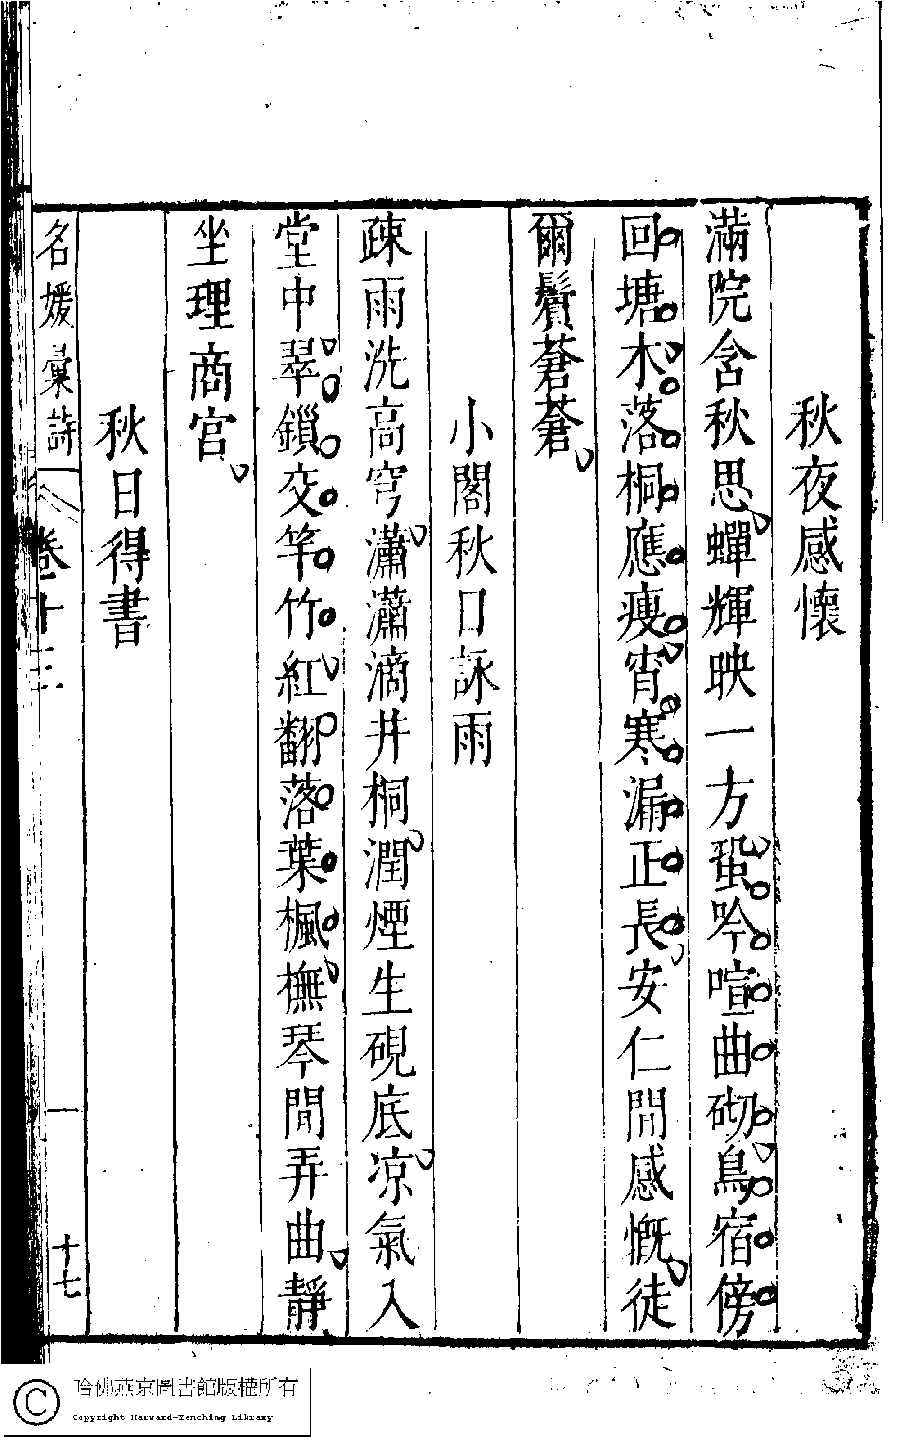 秋夜感懷
滿院含秋思蟬輝映一方蛩吟喧曲砌鳥宿傍
回塘木落桐應痩宵寒漏正長安仁間感慨徒
爾鬢蒼蒼
小閣秋日詠雨
疎雨洗高穹瀟瀟滴井桐潤煙生硯底凉氣入
堂中翠鎻交竿竹紅翻落葉楓撫琴閒弄曲靜
坐理商宫
秋日得書
名媛彚詩
卷十三
一
十七
哈佛燕京圖書館版權所有
Copyright Harvard-Yenching Library